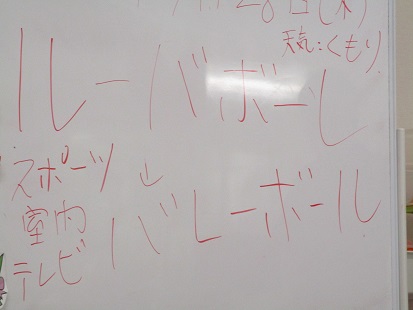 28日(木)
天気:くもり
ルーバボーレ
スポーツ ↓
室内 バレーボール
テレビ